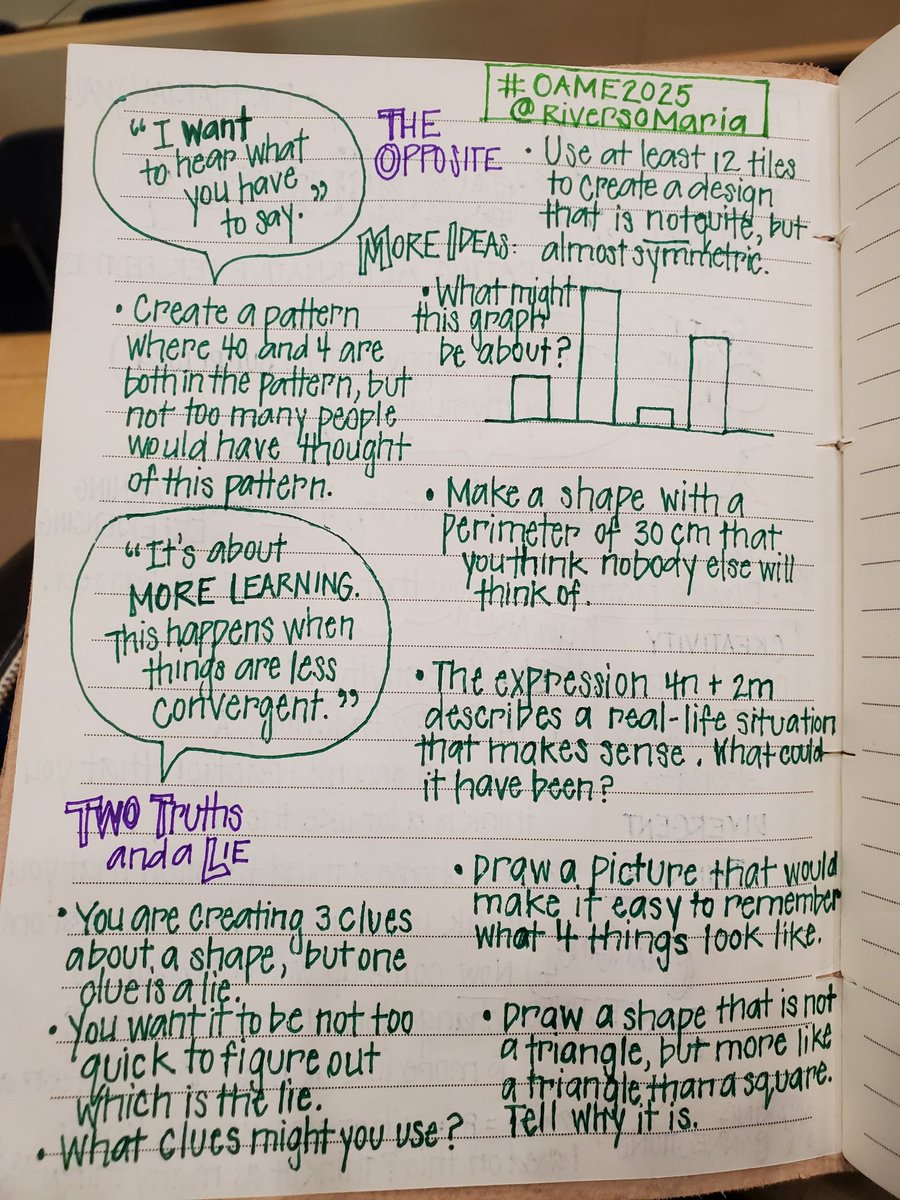 # OAME2025
@RiversoMaria
"I want
to hear what
you have
to say."
THE
OPPOSITE
• Use at least 12 tiles
to create a design
that is not quite, but
almost symmetric.
MORE IDEAS:
• Create a pattern
where 40 and 4 are
both in the pattern, but
not too many people
would have thought
of this pattern.
• What might
this graph
be about?
"It's about
MORE LEARNING.
This happens when
things are less
convergent."
• Make a shape with a
perimeter of 30 cm that
you think nobody else will
think of.
• The expression 4n + 2m
describes a real-life situation
that makes sense. What could
it have been?
TWO Truths
and a LIE
• You are creating 3 clues
about a shape, but one
clue is a lie.
• You want it to be not too
quick to figure out
which is the lie.
• What clues might you use?
• Draw a picture that would
make it easy to remember
what 4 things look like.
• Draw a shape that is not
a triangle, but more like
a triangle than a square.
Tell why it is.